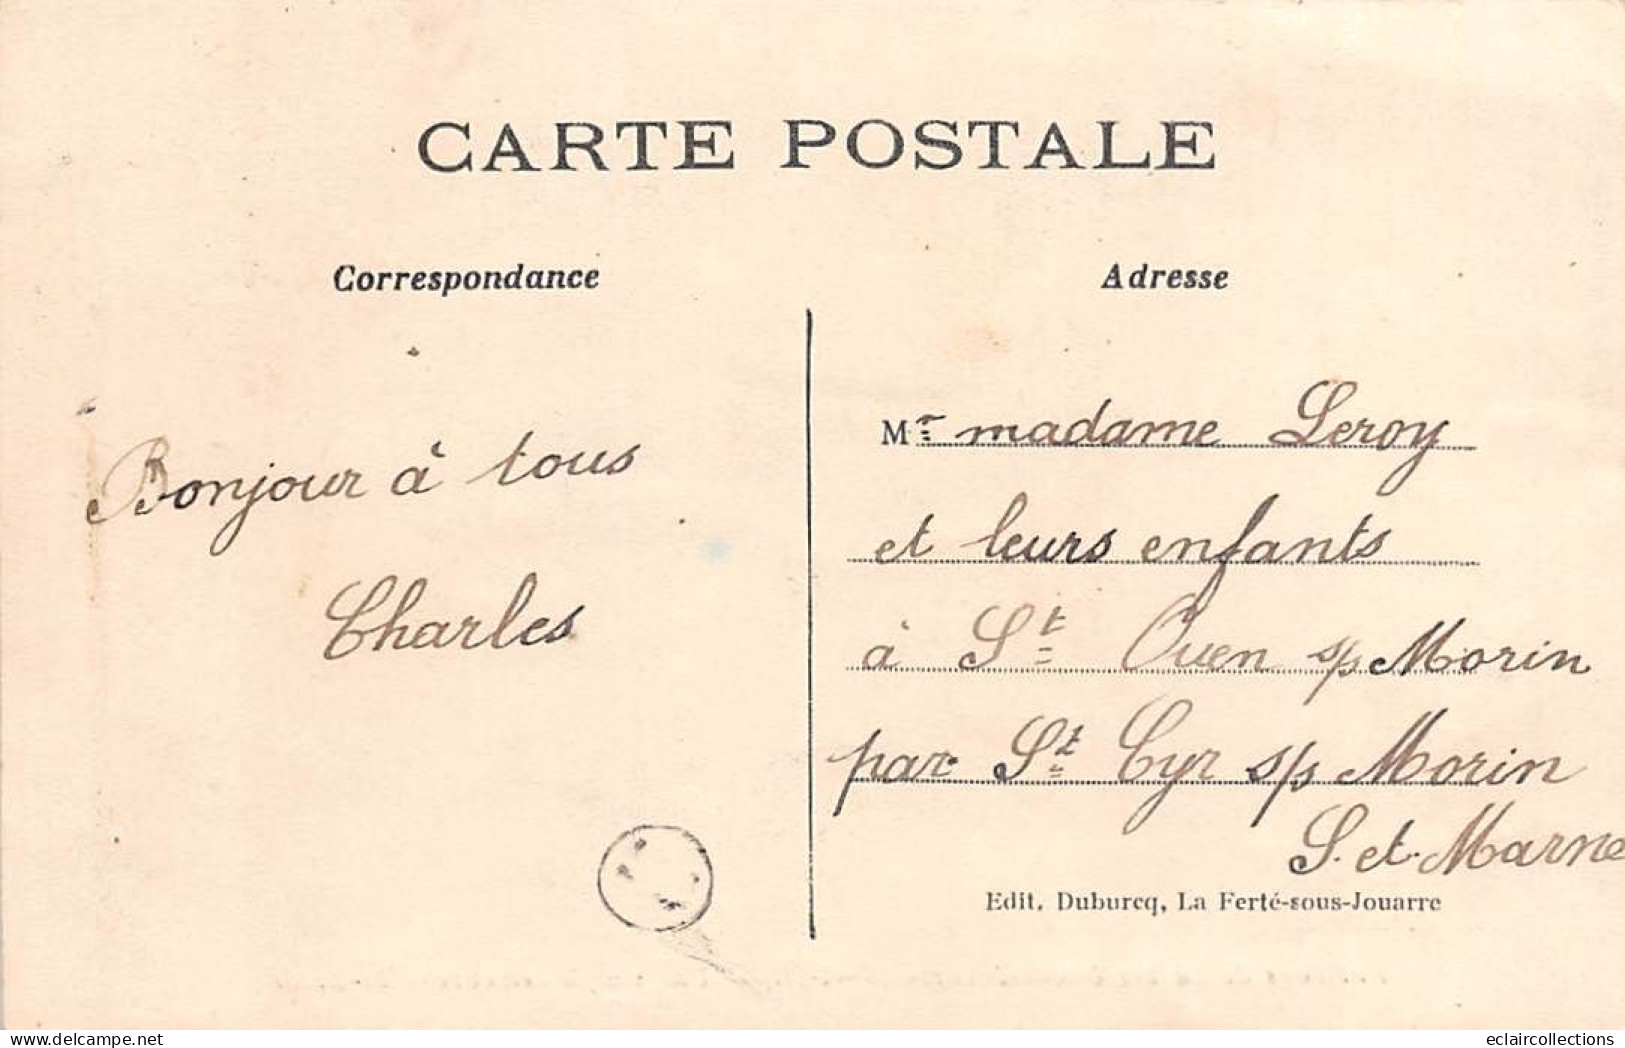 CARTE POSTALE
Correspondance
Adresse
Bonjour à tous
Charles
Mr madame Leroy
et leurs enfants
à St Ouen s/ Morin
par St Cyr s/ Morin
S. et Marne
Edit. Duburcq, La Ferté-sous-Jouarre
eclaircollections